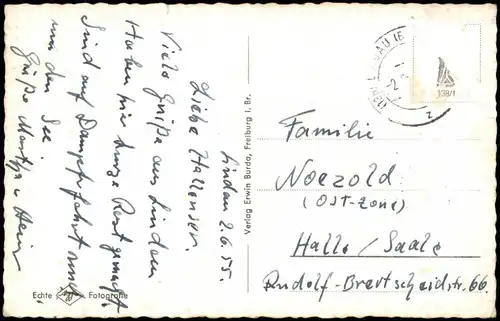 Lindau 2.6.55.
Liebe Hallenser.
Viele Grüße aus Lindau
Haben hier kurze Rast gemacht
Sind auf Dampferfahrt rund
um den See.
Grüße
Echte Fotografie
Verlag Erwin Burda, Freiburg i. Br.
138/1
Familie
Noezold
(Ost-Zone)
Halle / Saale
Rudolf-Breitscheidstr. 66.